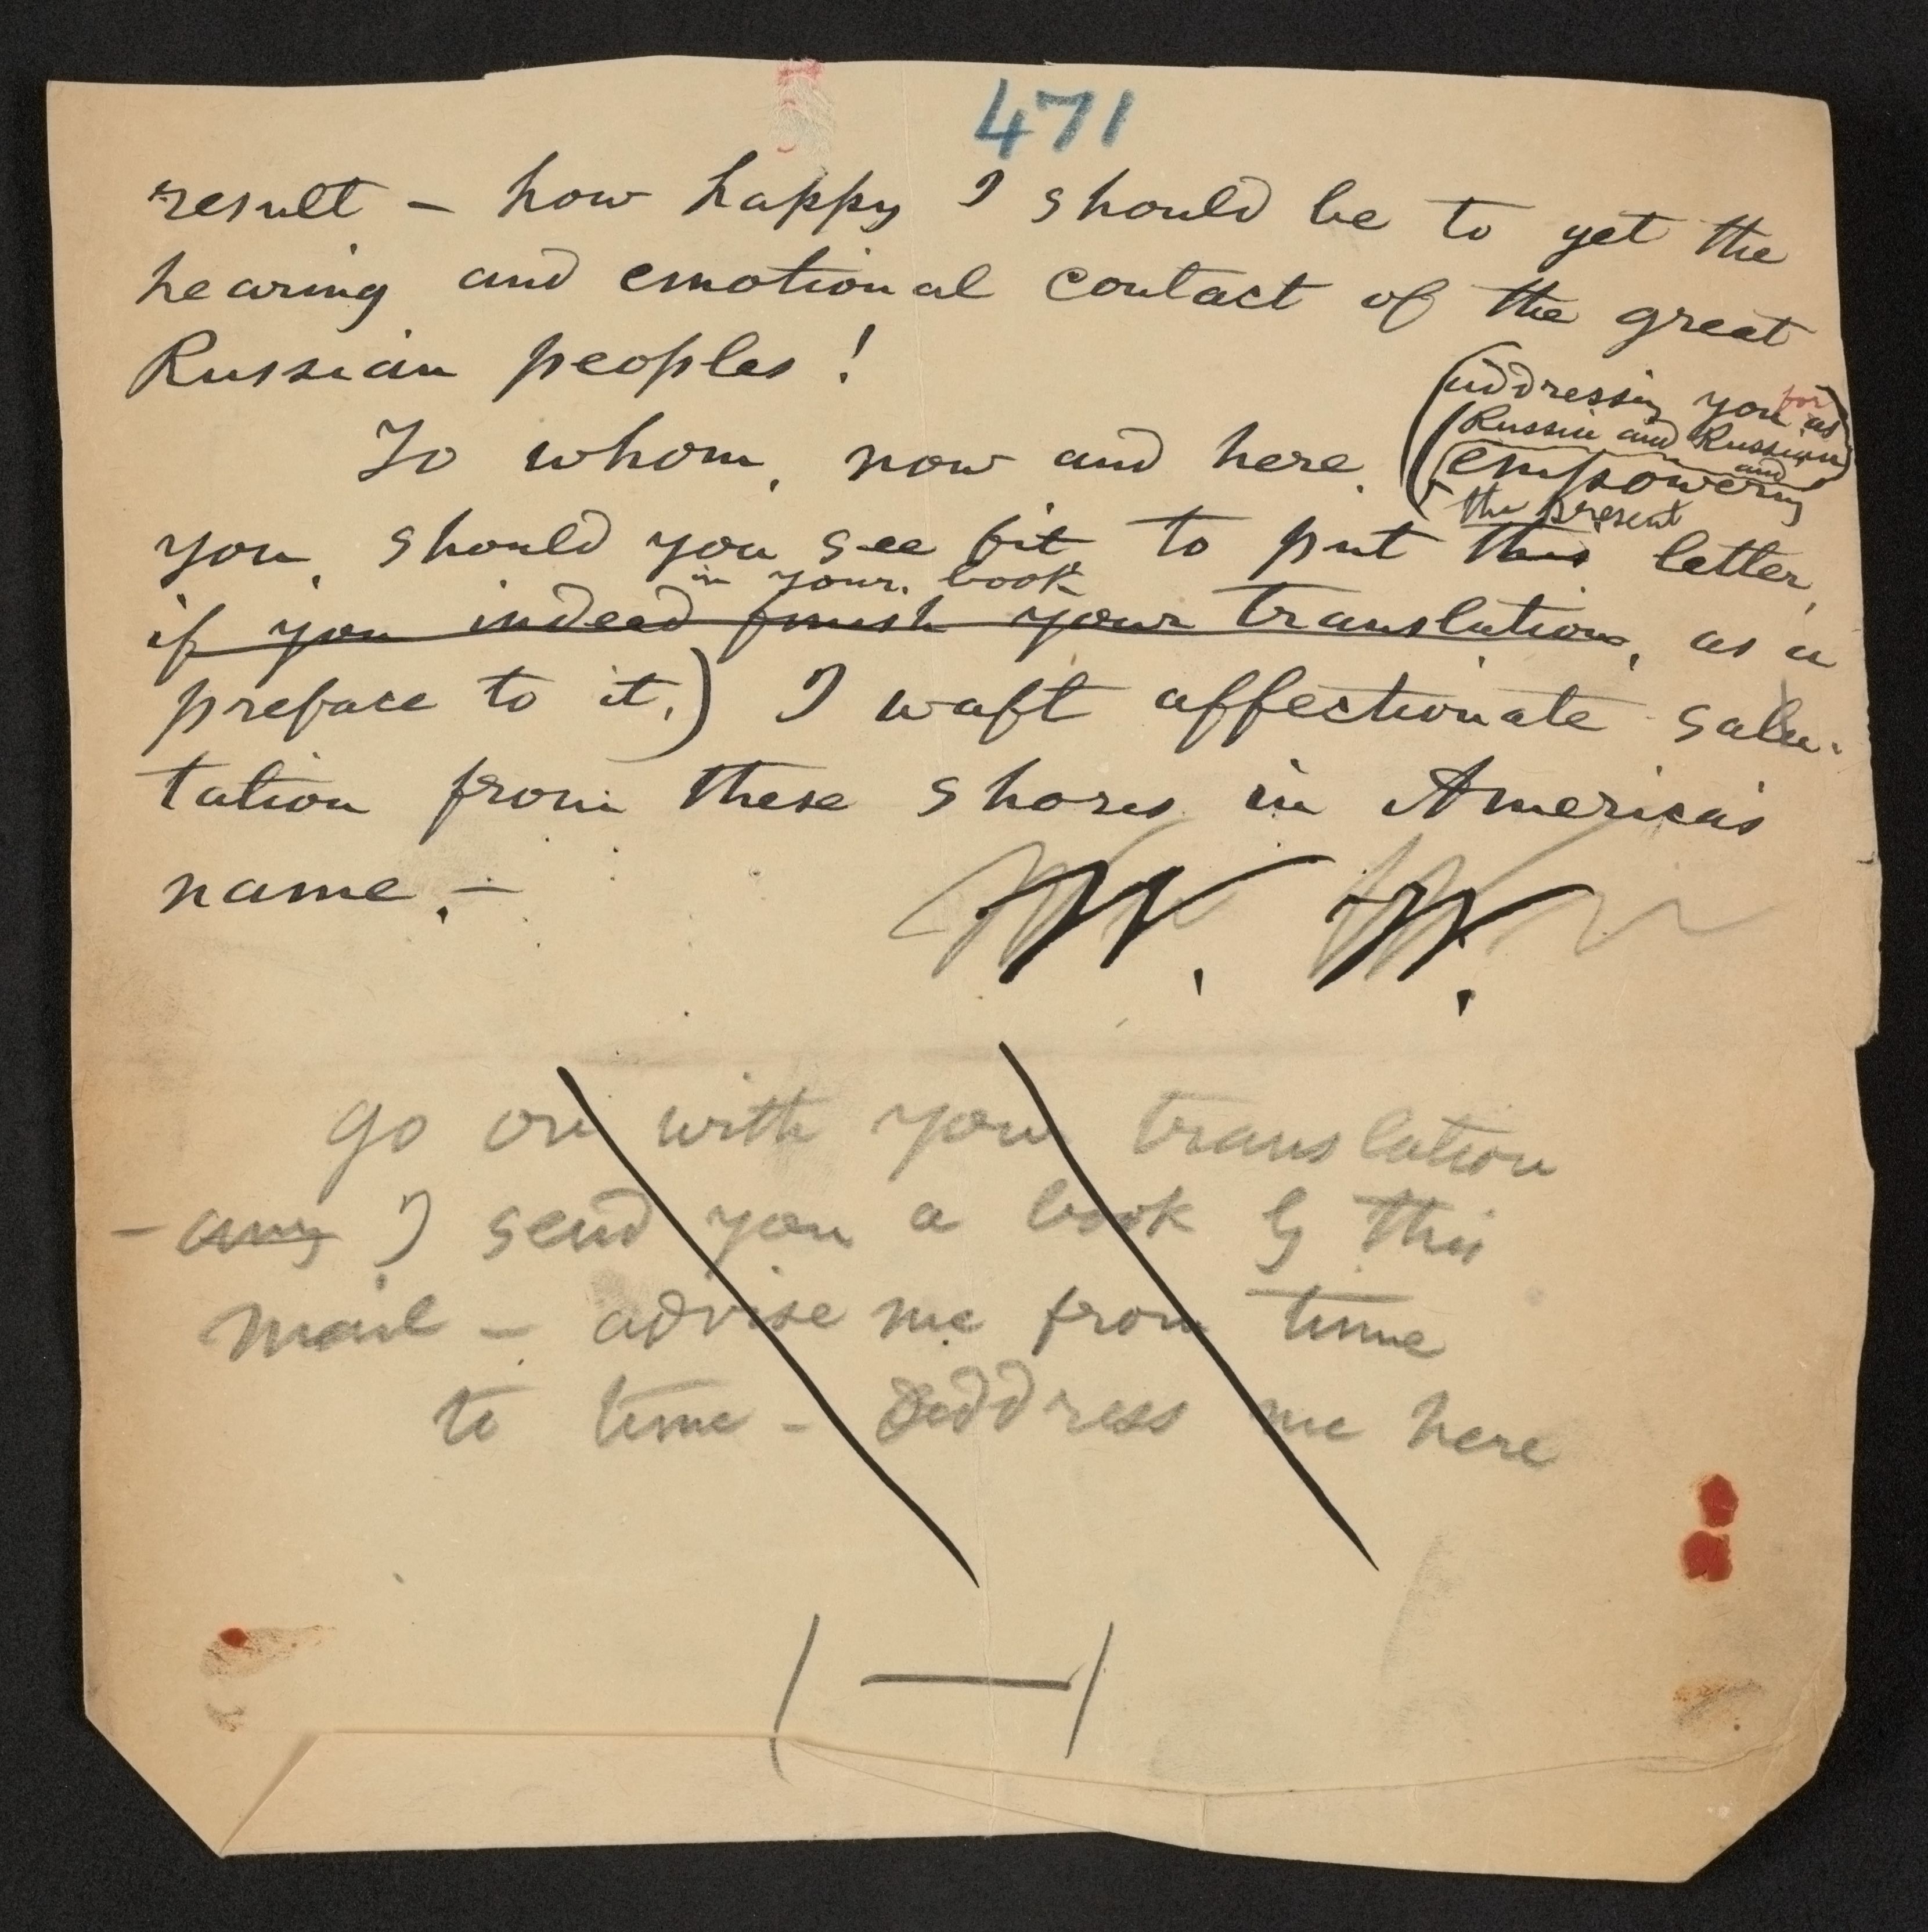 471
result – how happy I should be to get the
hearing and emotional contact of the great
Russian peoples!
To whom, now and here, (addressing you for
as
Russia and Russian
and
empowering
you, should you see fit to put this the present letter,
in your book
if you indeed finish your translation, as a
preface to it,) I waft affectionate salu-
tation from these shores in America's
name. –
W. W.
go on with your translation
– any I send you a book by this
mail – advise me from time
to time – address me here
( — )